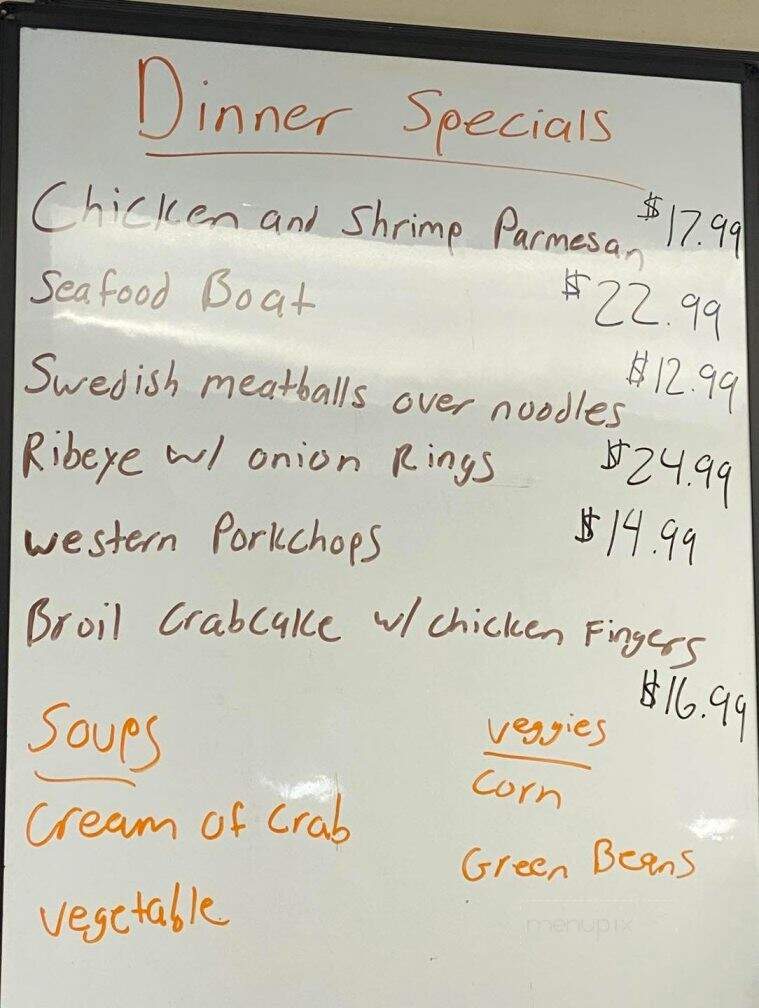 Dinner Specials
Chicken and Shrimp Parmesan $17.99
Seafood Boat $22.99
Swedish meatballs over noodles $12.99
Ribeye w/ onion Rings $24.99
western Porkchops $14.99
Broil Crabcake w/ chicken Fingers
$16.99
Soups
Cream of Crab
vegetable
veggies
Corn
Green Beans
menupix